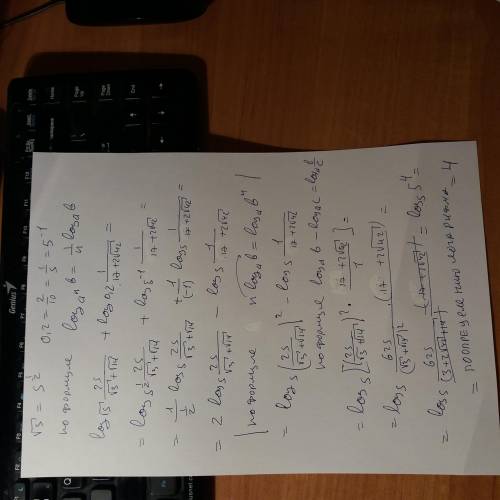 √5 = 5^(1/2)    0,2 = 2/10 = 1/5 = 5^-1
по формуле log_{a^n} b = 1/n log_a b
log_{√5} 25/(√3+√14) + log_{0,2} 1/(17+2√42) =
= log_{5^(1/2)} 25/(√3+√14) + log_{5^-1} 1/(17+2√42) =
= 1/(1/2) log_5 25/(√3+√14) + 1/(-1) log_5 1/(17+2√42) =
= 2 log_5 25/(√3+√14) - log_5 1/(17+2√42) =
| по формуле n log_a b = log_a b^n |
= log_5 (25/(√3+√14))^2 - log_5 1/(17+2√42) =
по формуле log_a b - log_a c = log_a b/c
= log_5 [(25/(√3+√14))^2 · (17+2√42)/1] =
= log_5 625/(√3+√14)^2 · (17+2√42) =
= log_5 625/(3+2√42+14) · (17+2√42) = log_5 5^4
= по определению логарифма = 4
Genius